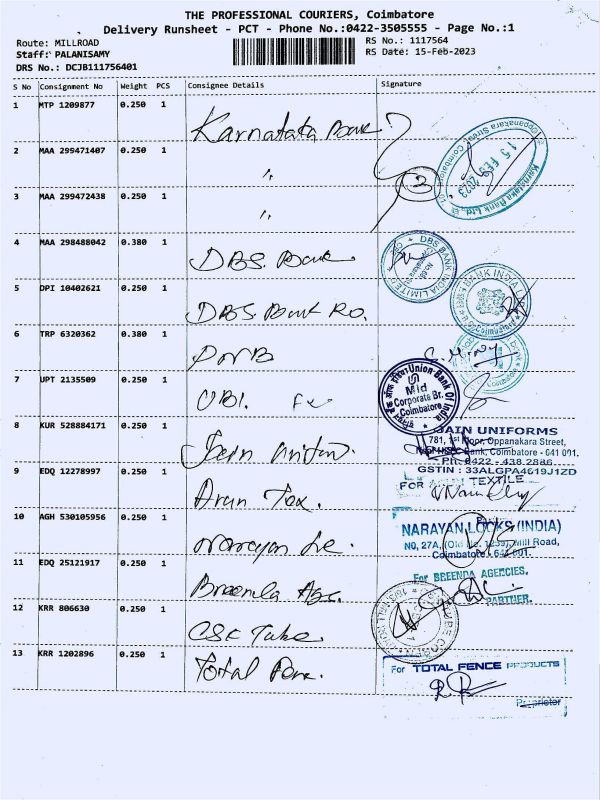 THE PROFESSIONAL COURIERS, Coimbatore
Delivery Runsheet - PCT - Phone No.:0422-3505555 - Page No.:1
Route: MILLROAD
Staff: PALANISAMY
DRS No.: DCJB111756401
RS No.: 1117564
RS Date: 15-Feb-2023
S No Consignment No Weight PCS Consignee Details Signature
1 MTP 1209877 0.250 1 Karnataka Bank
2 MAA 299471407 0.250 1 "
3 MAA 299472438 0.250 1 "
3
15 FEB 2023
Karnataka Bank Ltd.
Oppanakara Street, Coimbatore
4 MAA 298488042 0.380 1 DBS. Bank
DBS BANK INDIA LIMITED
5 DPI 10402621 0.250 1 DBS Bank Ro.
BANK INDIA
Coimbatore
6 TRP 6320362 0.380 1 PNB
7 UPT 2135509 0.250 1 UBI.
Union Bank Of India
Mid
Corporate Br.
Coimbatore
8 KUR 528884171 0.250 1 Jain Uniform.
JAIN UNIFORMS
781, 1st Floor, Oppanakara Street,
Bank, Coimbatore - 641 001.
Ph: 0422 - 438 2886
GSTIN : 33ALGPA4619J1ZD
9 EDQ 12278997 0.250 1 Arun Tex.
FOR ARUN TEXTILE
10 AGH 530105956 0.250 1 Narayan
NARAYAN LOCKS (INDIA)
NO, 27A, (Old No. 1239), Mill Road,
Coimbatore - 641 001.
11 EDQ 25121917 0.250 1 Breenda Ags.
For BREENDA AGENCIES.
PARTNER.
12 KRR 806630 0.250 1 CSK Tube
13 KRR 1202896 0.250 1 Total Fence.
For TOTAL FENCE PRODUCTS
Proprietor